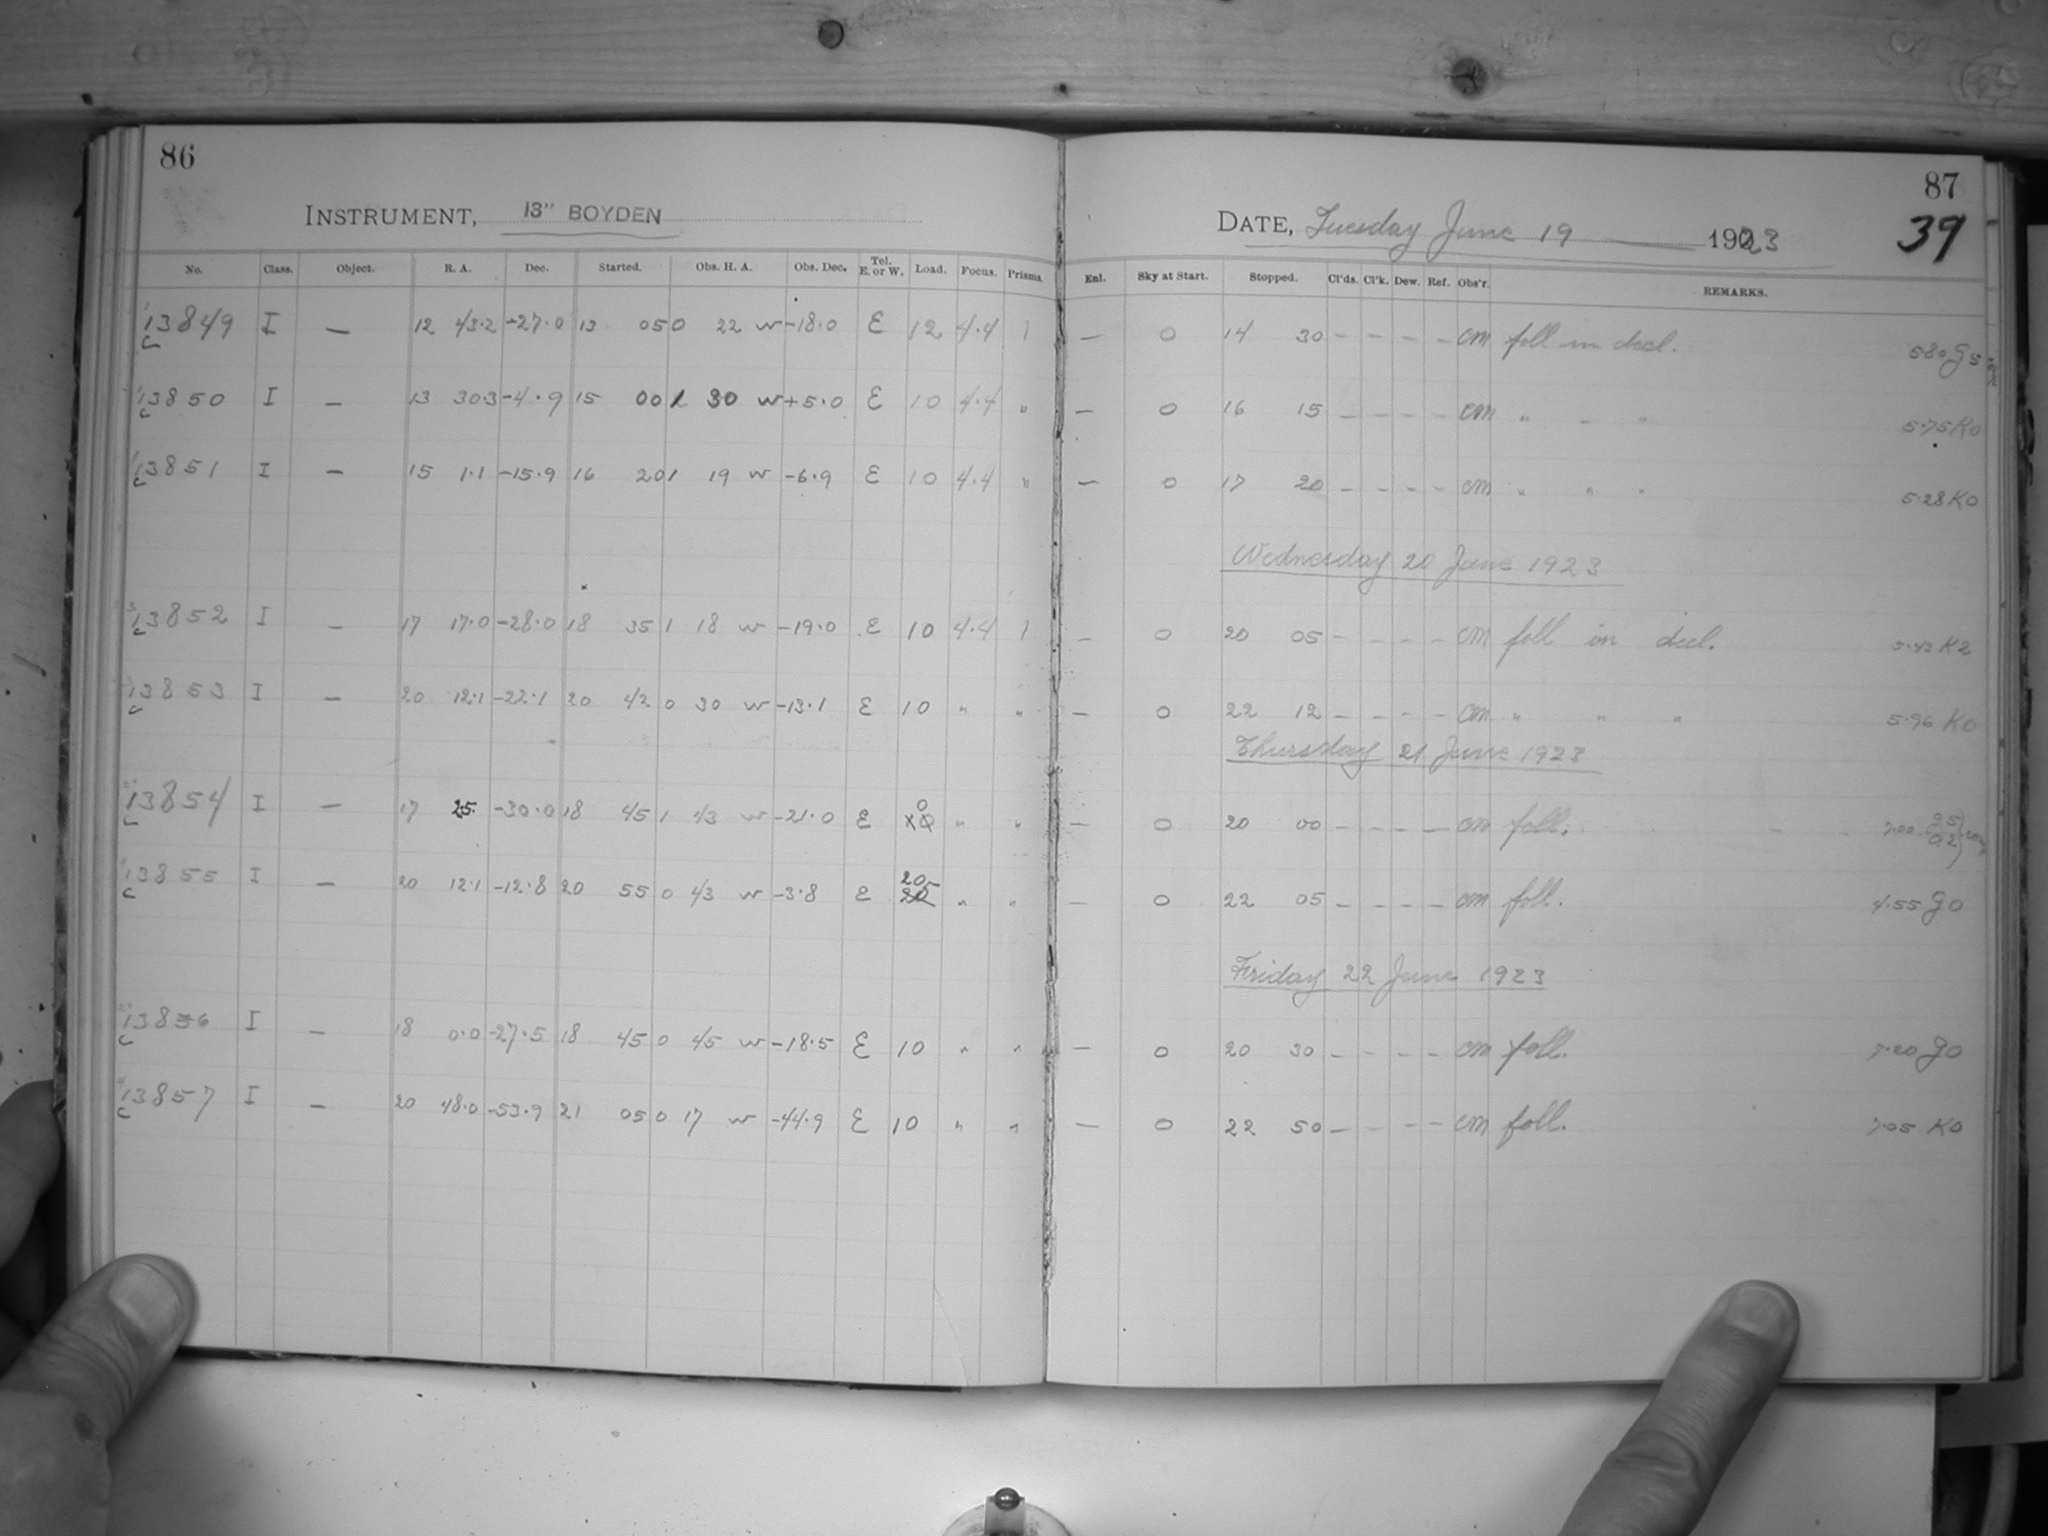 86
INSTRUMENT, 13" BOYDEN
No. Class. Object. R. A. Dec. Started. Obs. H. A. Obs. Dec. Tel. E. or W. Load. Focus. Prisms.
13849 I — 12 43.2 -27.0 13 05 0 22 W -18.0 E 12 4.4 1
13850 I — 13 30.3 -4.9 15 00 1 30 W +5.0 E 10 4.4 "
13851 I — 15 1.1 -15.9 16 20 1 19 W -6.9 E 10 4.4 "
13852 I — 17 17.0 -28.0 18 35 1 18 W -19.0 E 10 4.4 1
13853 I — 20 12.1 -22.1 20 42 0 30 W -13.1 E 10 " "
13854 I — 17 25. -30.0 18 45 1 43 W -21.0 E " "
13855 I — 20 12.1 -12.8 20 55 0 43 W -3.8 E 20 " "
13856 I — 18 0.0 -27.5 18 45 0 45 W -18.5 E 10 " "
13857 I — 20 48.0 -53.9 21 05 0 17 W -44.9 E 10 " "
87
DATE, Tuesday June 19 1923
39
Enl. Sky at Start. Stopped. Cl'ds. Cl'k. Dew. Ref. Obs'r. REMARKS.
— 0 14 30 – – – – CM foll in decl. 5.80 G5
— 0 16 15 – – – – CM " " " 5.75 K0
— 0 17 20 – – – – CM " " " 5.28 K0
Wednesday 20 June 1923
— 0 20 05 – – – – CM foll in decl. 5.43 K2
— 0 22 12 – – – – CM " " " 5.96 K0
Thursday 21 June 1923
— 0 20 00 – – – – CM foll. 7.00
— 0 22 05 – – – – CM foll. 4.55 G0
Friday 22 June 1923
— 0 20 30 – – – – CM foll. 7.20 G0
— 0 22 50 – – – – CM foll. 7.05 K0